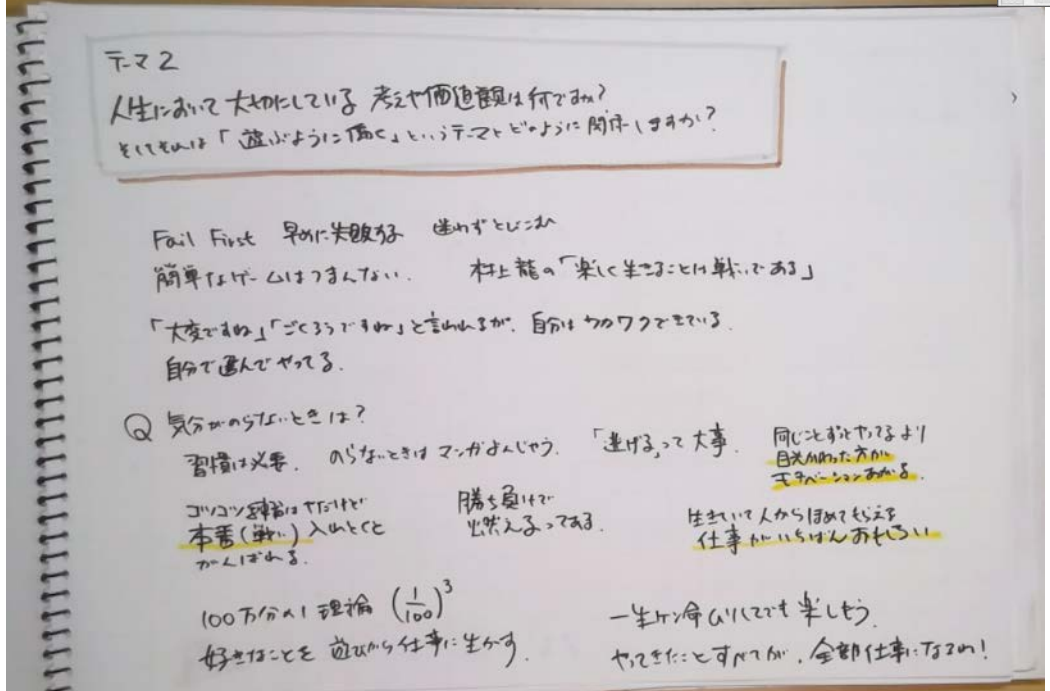 テーマ2
人生において大切にしている 考えや価値観は何ですか?
そしてそれは「遊ぶように働く」というテーマとどのように関係しますか?
Fail First 早めに失敗する 迷わずとびこむ
簡単なゲームはつまんない. 村上龍の「楽しく生きることは戦いである」
「大変ですね」「ごくろうですね」と言われるが、自分はワクワクできている.
自分で選んでやってる.
Q 気分がのらないときは?
習慣は必要. のらないときは マンガよんじゃう. 「逃げる」って大事.
同じことずっとやってるより
目先かわった方が
モチベーションあがる.
コツコツ練習はヤだけど
本番(戦い)入れとくと
がんばれる.
勝ち負けで
燃えるってある.
生きていて人からほめてもらえる
仕事がいちばんおもしろい
100万分の1理論 (1/100)³
好きなことを 遊びから仕事に生かす.
一生ケン命ムリしてでも楽しもう.
やってきたことすべてが、全部仕事になるわ!